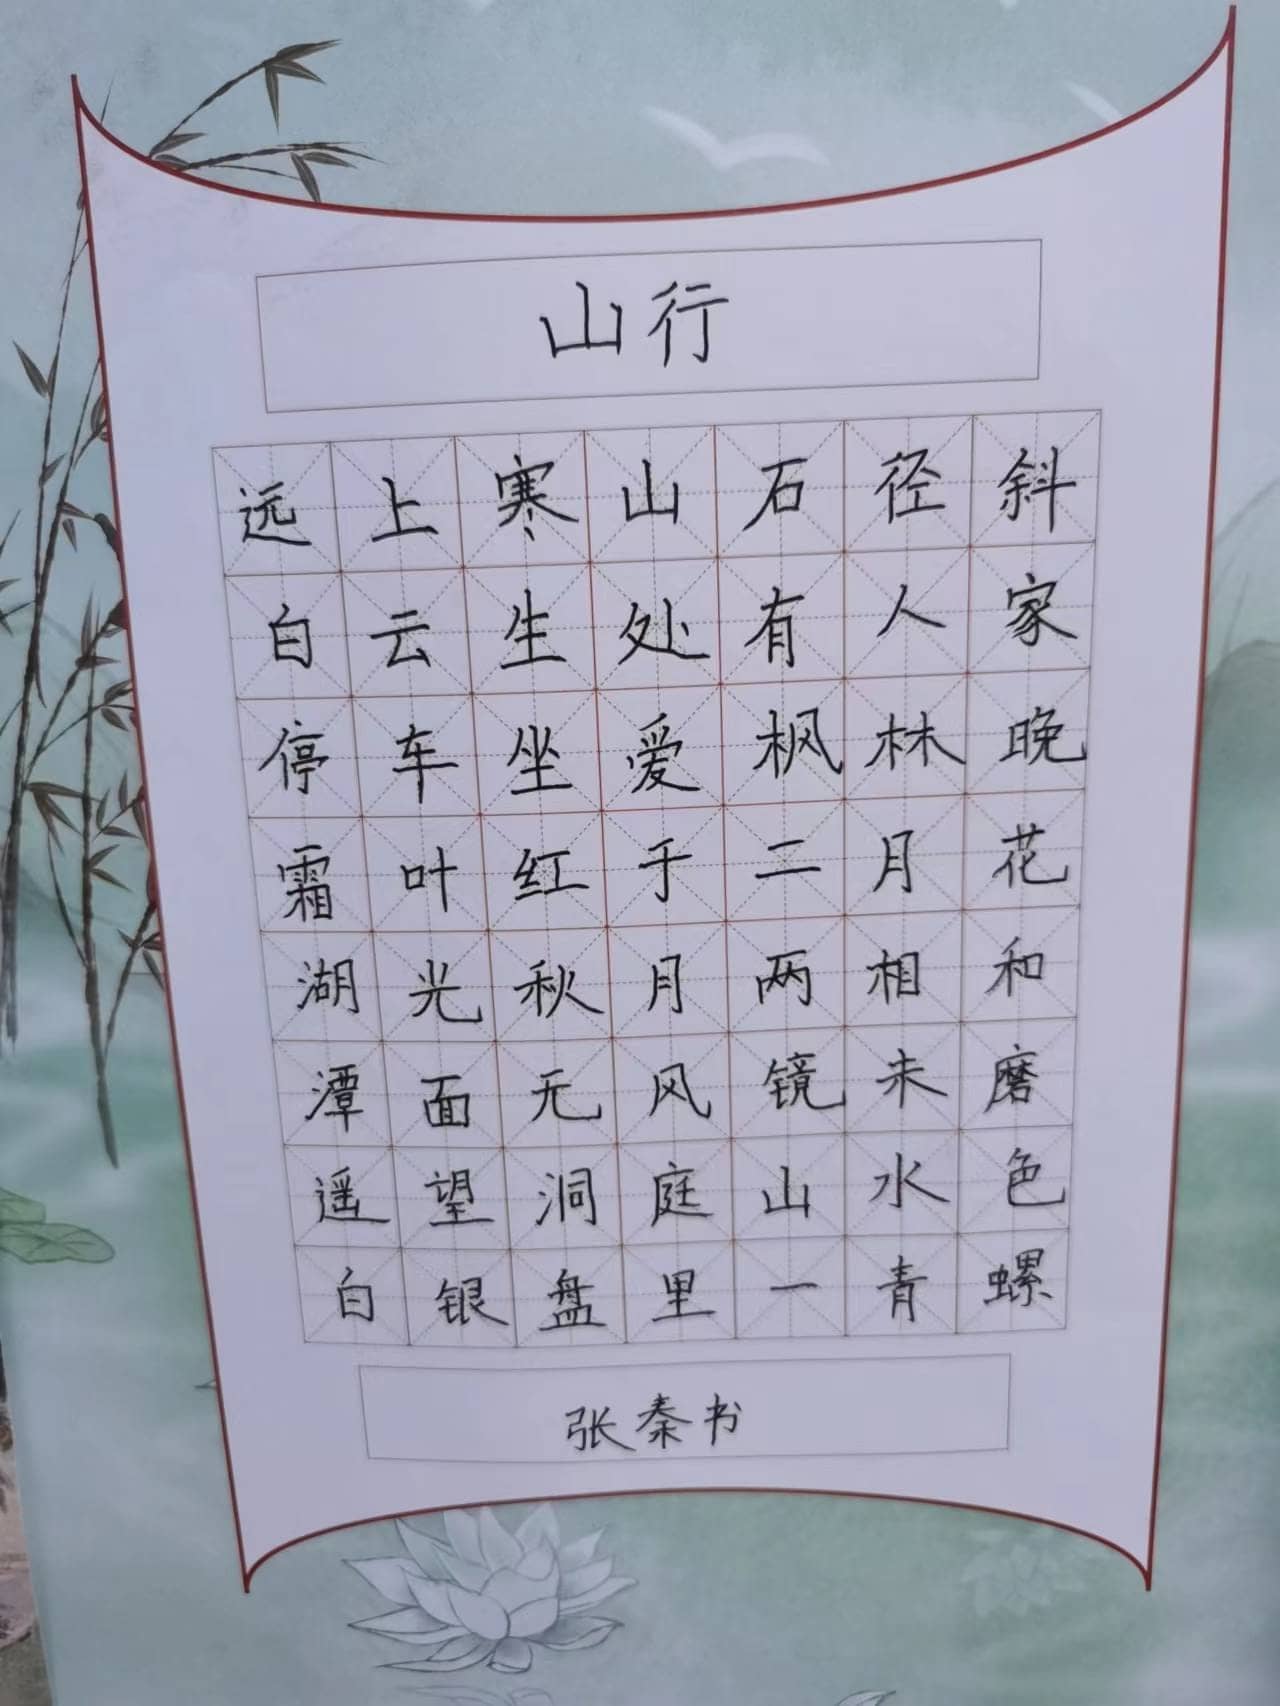 山行
远上寒山石径斜
白云生处有人家
停车坐爱枫林晚
霜叶红于二月花
湖光秋月两相和
潭面无风镜未磨
遥望洞庭山水色
白银盘里一青螺
张秦书